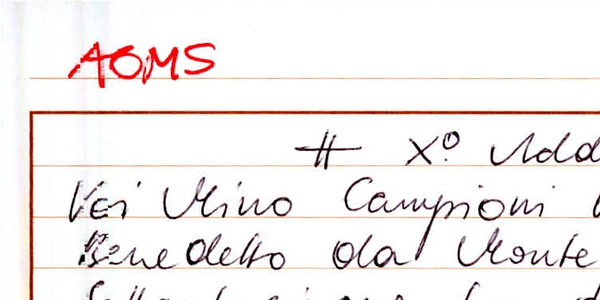 AOMS
# X.º Add
Voi Mino Campioni
Benedetto da Monte